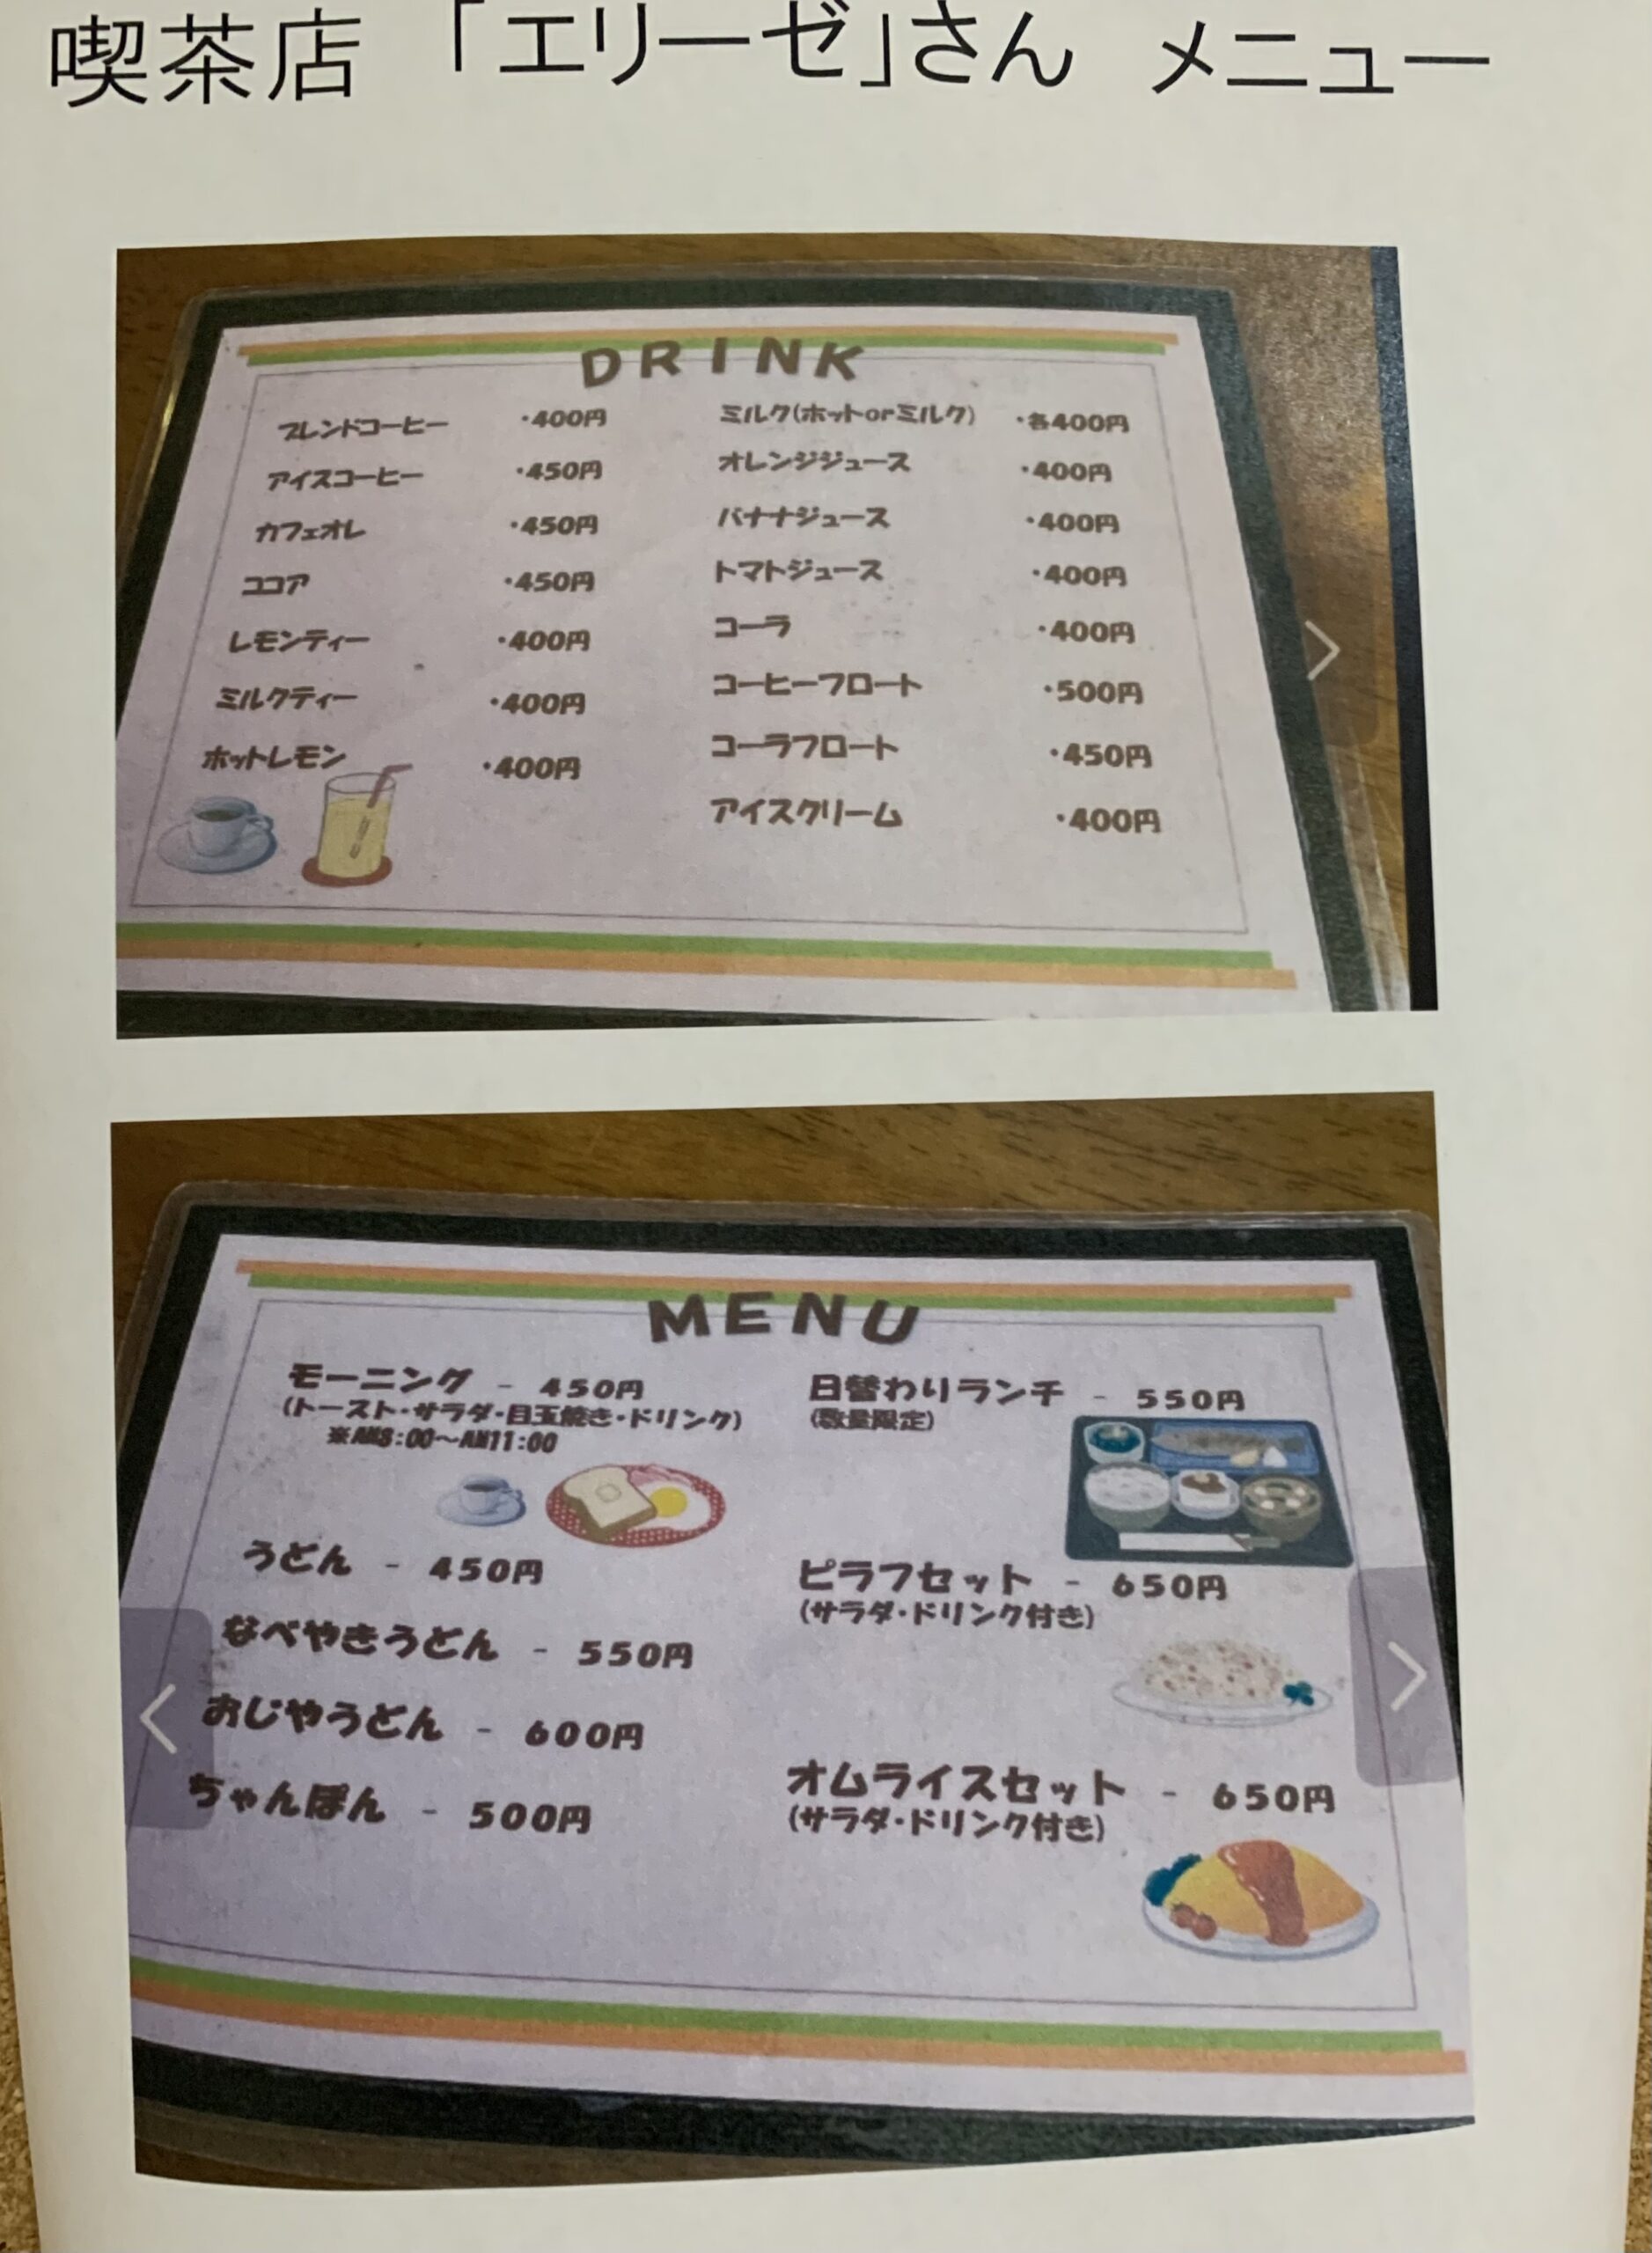 喫茶店 「エリーゼ」さん メニュー
DRINK
ブレンドコーヒー ・400円
アイスコーヒー ・450円
カフェオレ ・450円
ココア ・450円
レモンティー ・400円
ミルクティー ・400円
ホットレモン ・400円
ミルク(ホットorミルク) ・各400円
オレンジジュース ・400円
バナナジュース ・400円
トマトジュース ・400円
コーラ ・400円
コーヒーフロート ・500円
コーラフロート ・450円
アイスクリーム ・400円
MENU
モーニング - 450円
(トースト・サラダ・目玉焼き・ドリンク)
※AM8:00〜AM11:00
うどん - 450円
なべやきうどん - 550円
おじやうどん - 600円
ちゃんぽん - 500円
日替わりランチ - 550円
(数量限定)
ピラフセット - 650円
(サラダ・ドリンク付き)
オムライスセット - 650円
(サラダ・ドリンク付き)